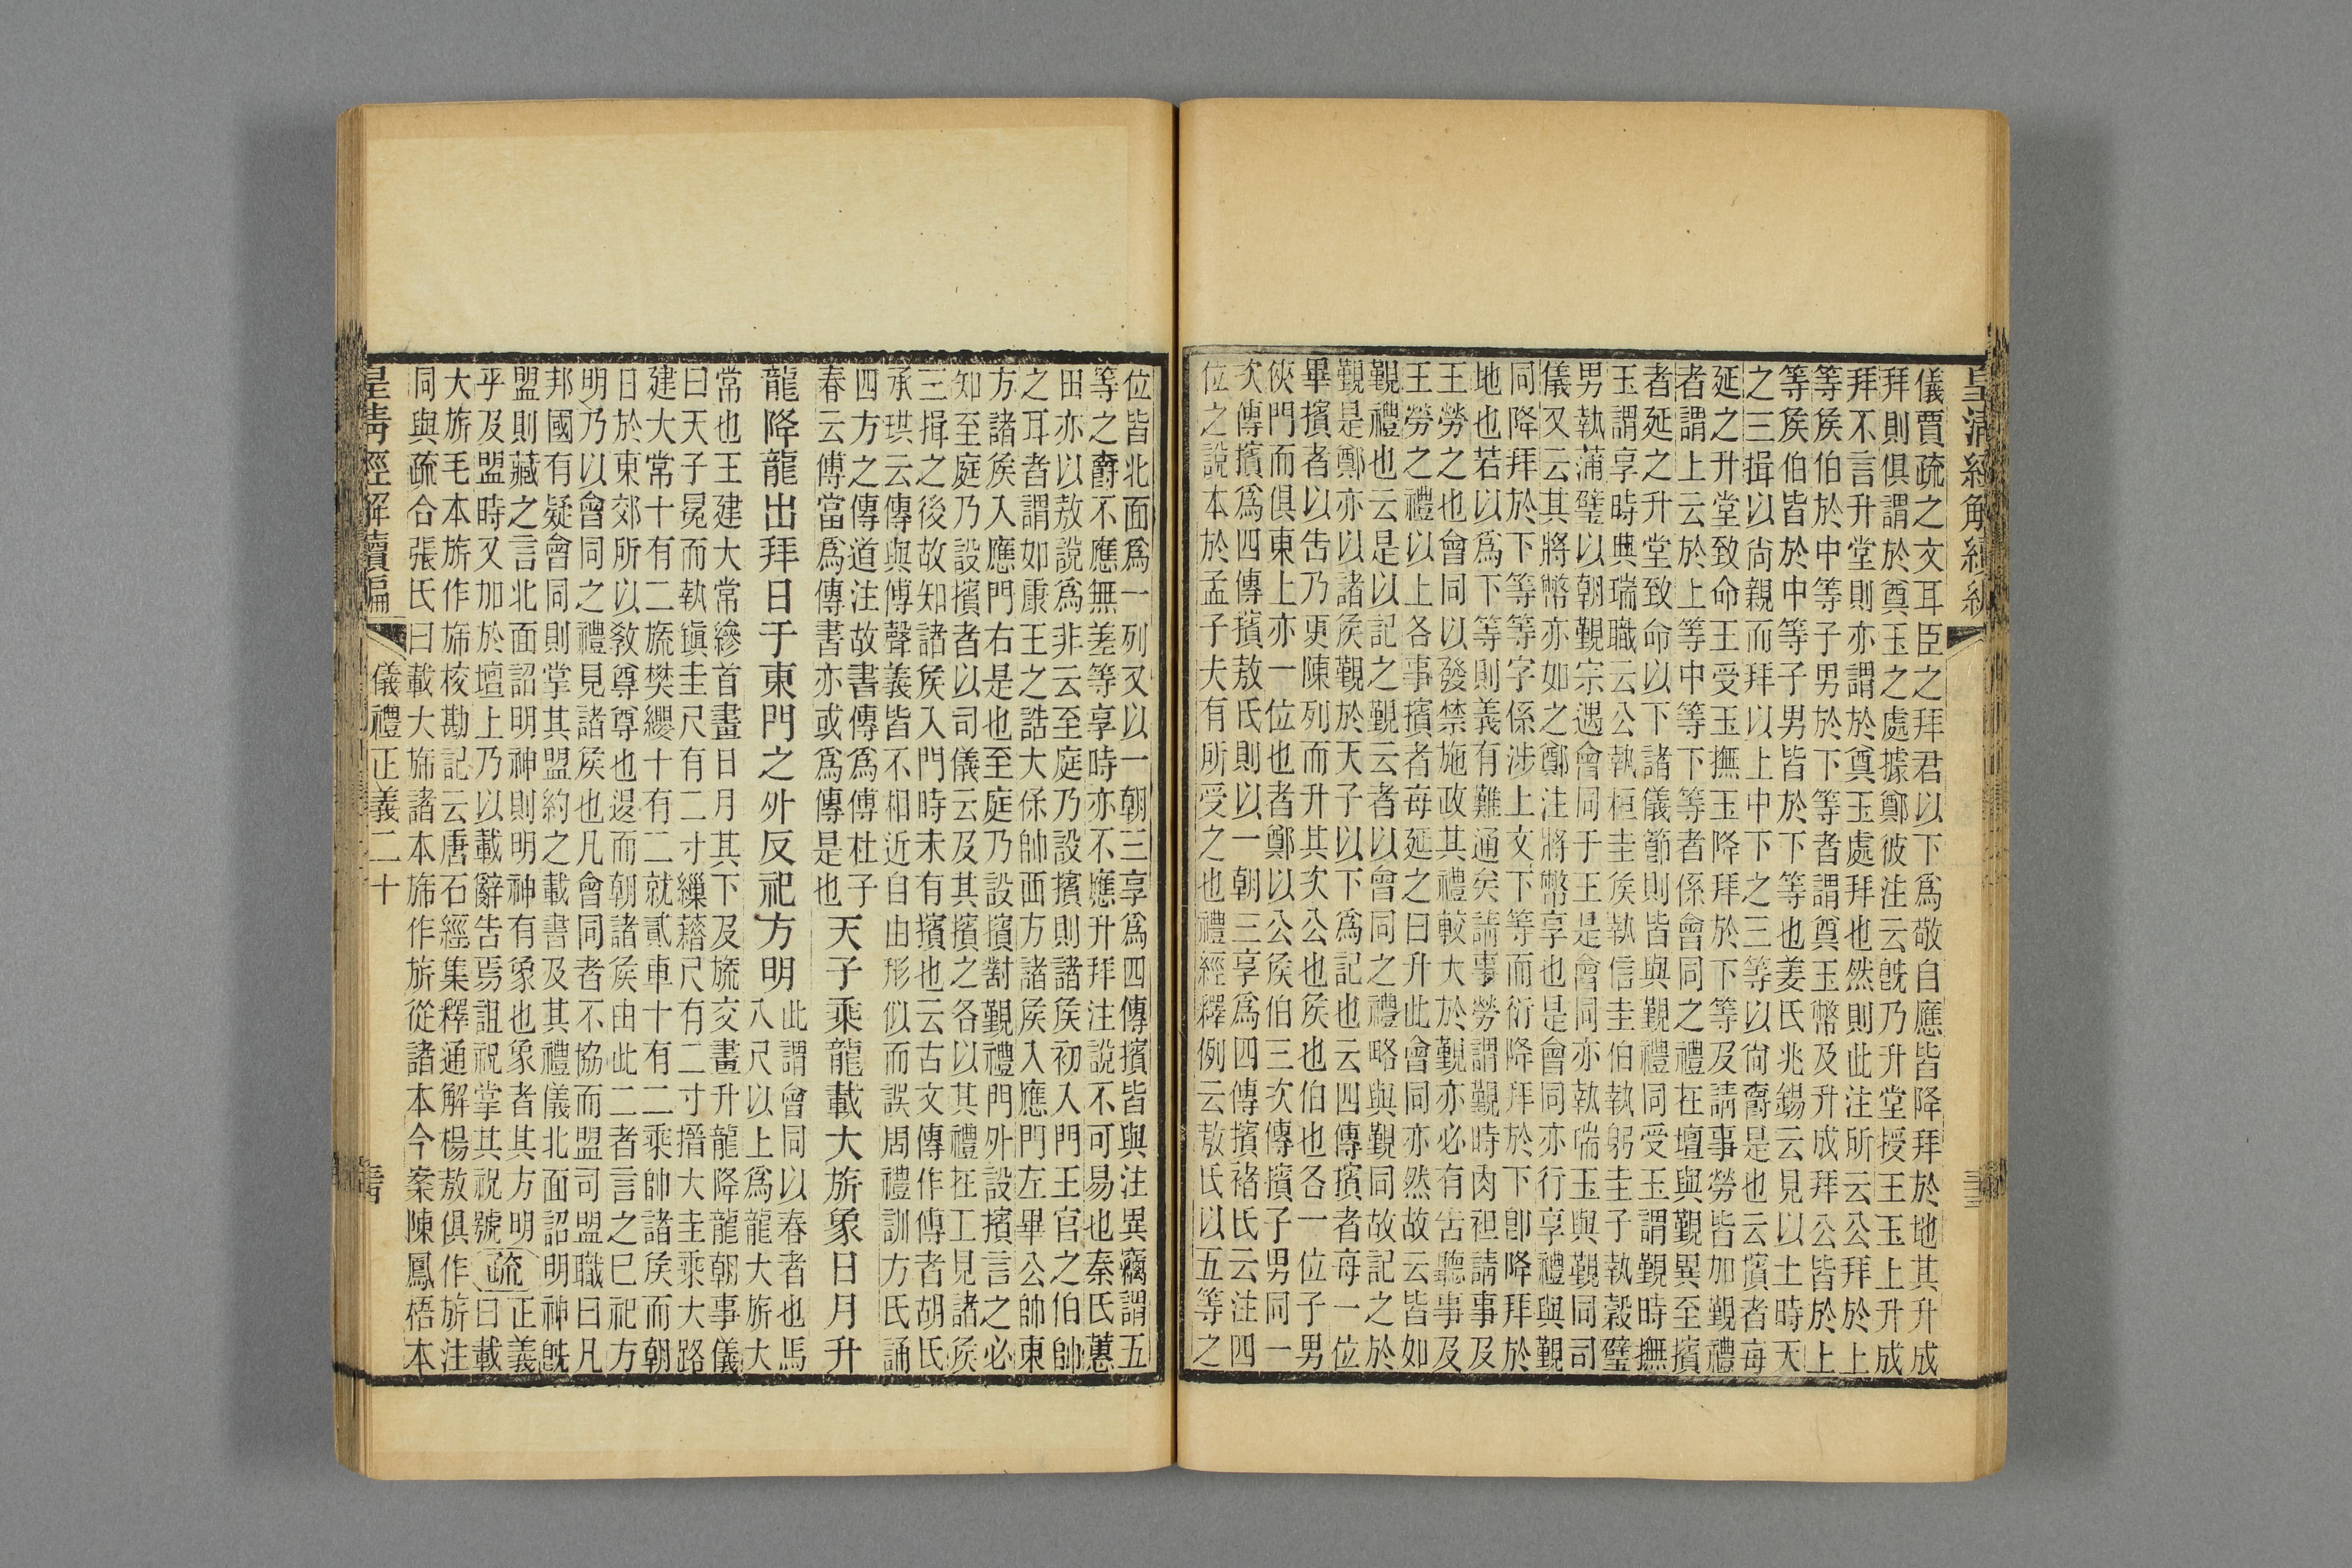 皇清經解續編
儀賈疏之文耳臣之拜君以下爲敬自應皆降拜於地其升成
拜則俱謂於奠玉之處據鄭彼注云旣乃升堂授王玉上升成
拜不言升堂則亦謂於奠玉處拜也然則此注所云公拜於上
等矦伯於中等子男於下等者謂奠玉幣及升成拜公皆於上
等矦伯皆於中等子男皆於下等也姜氏兆錫云見以土時天
之三揖以尙親而拜以上中下之三等以尙爵是也云擯者每
延之升堂致命王受玉撫玉降拜於下等及請事勞皆加覲禮
者謂上云於上等中等下等者係會同之禮在壇與覲異至擯
者延之升堂致命以下諸儀節則皆與覲禮同受玉謂覲時撫
玉謂享時典瑞職云公執桓圭矦執信圭伯執躬圭子執穀璧
男執蒲璧以朝覲宗遇會同于王是會同亦執瑞玉與覲同司
儀又云其將幣亦如之鄭注將幣享也是會同亦行享禮與覲
同降拜於下等等字係涉上文下等而衍降拜於下卽降拜於
地也若以爲下等則義有難通矣請事勞謂覲時肉袒請事及
王勞之也會同以發禁施政其禮較大於覲亦必有告聽事及
王勞之禮以上各事擯者每延之曰升此會同亦然故云皆如
覲禮也云是以記之覲云者以會同之禮略與覲同故記之於
覲是鄭亦以諸矦覲於天子以下爲記也云四傳擯者每一位
畢擯者以告乃更陳列而升其次公也矦也伯也各一位子男
俠門而俱東上亦一位也者鄭以公矦伯三次傳擯子男同一
次傳擯爲四傳擯敖氏則以一朝三享爲四傳擯褚氏云注四
位之說本於孟子夫有所受之也禮經釋例云敖氏以五等之
位皆北面爲一列又以一朝三享爲四傳擯皆與注異竊謂五
等之爵不應無差等享時亦不應升拜注說不可易也秦氏蕙
田亦以敖說爲非云至庭乃設擯則諸矦初入門王官之伯帥
之耳者謂如康王之誥大保帥西方諸矦入應門左畢公帥東
方諸矦入應門右是也至庭乃設擯對覲禮門外設擯言之必
知至庭乃設擯者以司儀云及其擯之各以其禮在工見諸矦
三揖之後故知諸矦入門時未有擯也云古文傳作傅者胡氏
承珙云傳與傅聲義皆不相近自由形似而誤周禮訓方氏誦
四方之傳道注故書傳爲傅杜子
春云傅當爲傳書亦或爲傳是也天子乘龍載大旂象日月升
龍降龍出拜日于東門之外反祀方明此謂會同以春者也馬
八尺以上爲龍大旂大
常也王建大常縿首畫日月其下及旒交畫升龍降龍朝事儀
曰天子冕而執鎭圭尺有二寸繅藉尺有二寸搢大圭乘大路
建大常十有二旒樊纓十有二就貳車十有二乘帥諸矦而朝
日於東郊所以敎尊尊也退而朝諸矦由此二者言之已祀方
明乃以會同之禮見諸矦也凡會同者不協而盟司盟職曰凡
邦國有疑會同則掌其盟約之載書及其禮儀北面詔明神旣
盟則藏之言北面詔明神則明神有象也象者其方明
乎及盟時又加於壇上乃以載辭告焉詛祝掌其祝號疏正義曰載
大旂毛本旂作旆校勘記云唐石經集釋通解楊敖俱作旂注
同與疏合張氏曰載大旆諸本旆作旂從諸本今案陳鳳梧本
皇淸經解續編
儀禮正義二十